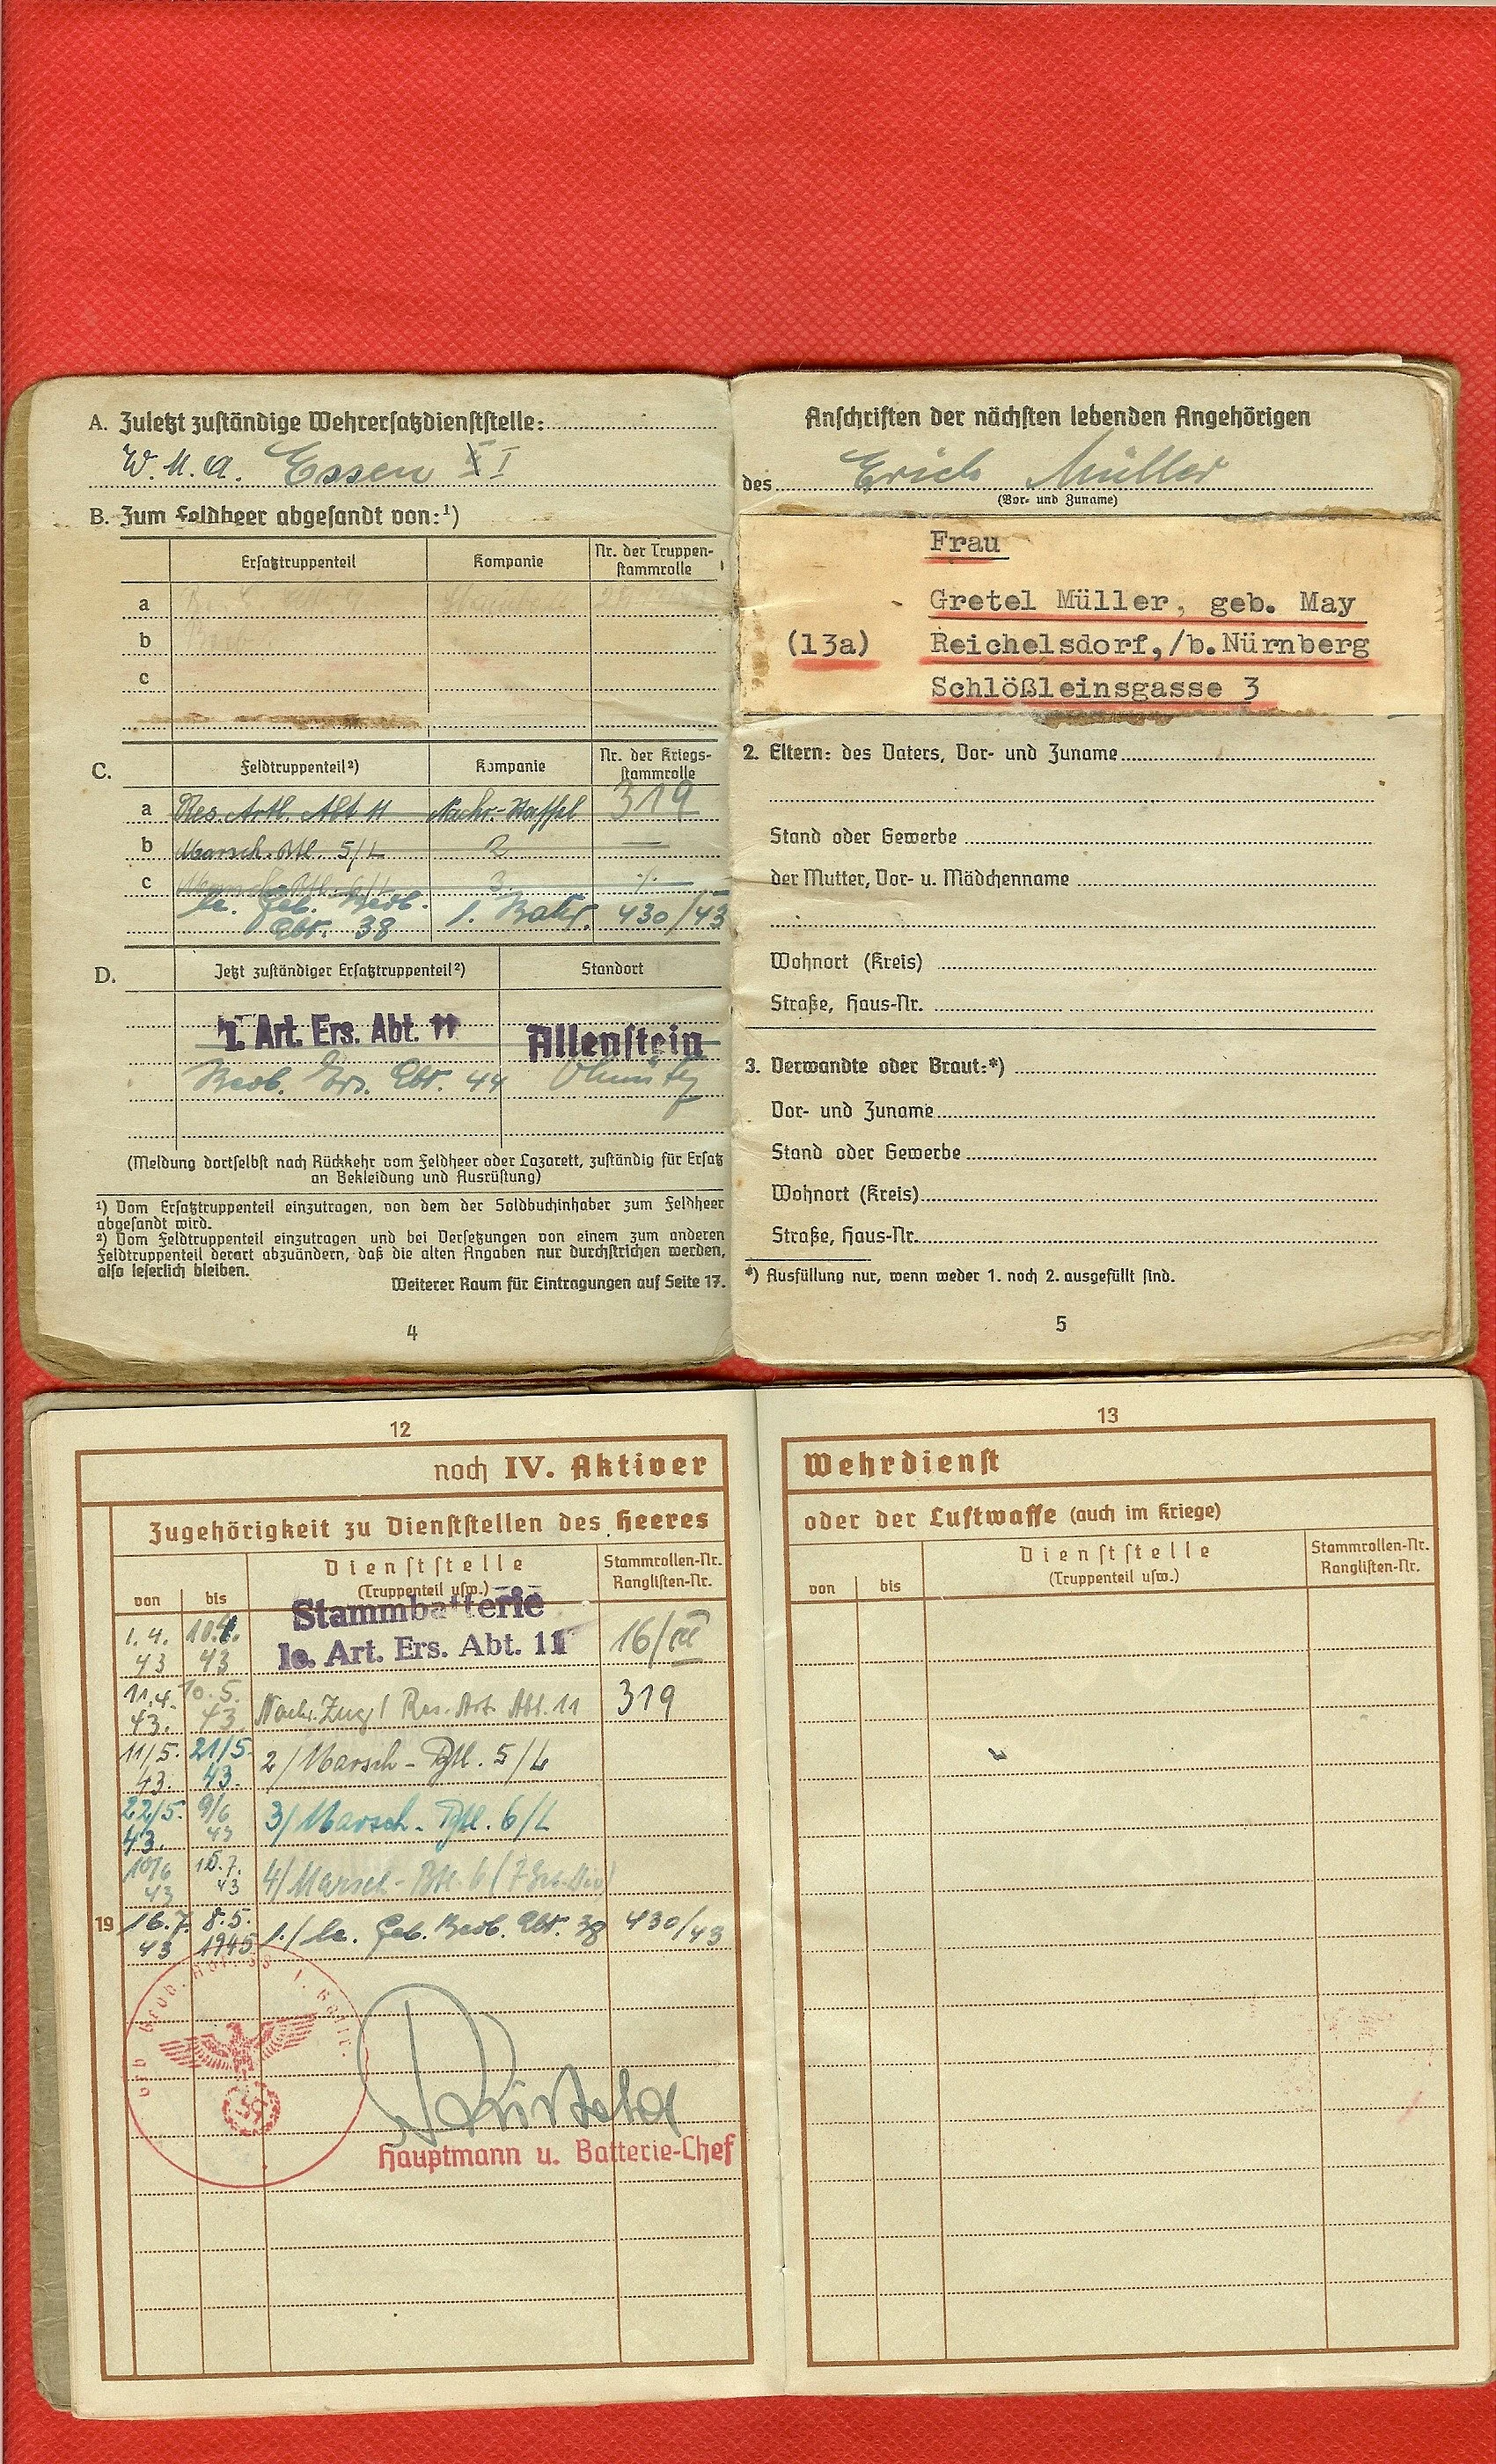 A. Zuletzt zuständige Wehrersatzdienststelle:
W.M.A. Essen I
B. Zum Feldheer abgesandt von:¹)
Ersatztruppenteil Kompanie Nr. der Truppen-
stammrolle
a
b
c
C. Feldtruppenteil²) Kompanie Nr. der Kriegs-
stammrolle
a Res. Artl. Abt 11 Nachr.-Staffel 319
b Marsch.Btl. 5/L 2 —
c Marsch.Btl. 6/L 3. ./.
le. Geb. Beob. 1. Battr. 430/43
Abt. 38
D. Jetzt zuständiger Ersatztruppenteil²) Standort
l. Art. Ers. Abt. 11 Allenstein
Beob. Ers. Abt. 44 Olmütz
(Meldung dortselbst nach Rückkehr vom Feldheer oder Lazarett, zuständig für Ersatz
an Bekleidung und Ausrüstung)
¹) Vom Ersatztruppenteil einzutragen, von dem der Soldbuchinhaber zum Feldheer
abgesandt wird.
²) Vom Feldtruppenteil einzutragen und bei Versetzungen von einem zum anderen
Feldtruppenteil derart abzuändern, daß die alten Angaben nur durchstrichen werden,
also leserlich bleiben.
Weiterer Raum für Eintragungen auf Seite 17.
4
Anschriften der nächsten lebenden Angehörigen
des Erich Müller
(Vor- und Zuname)
Frau
Gretel Müller, geb. May
(13a) Reichelsdorf,/b.Nürnberg
Schlößleinsgasse 3
2. Eltern: des Vaters, Vor- und Zuname
Stand oder Gewerbe
der Mutter, Vor- u. Mädchenname
Wohnort (Kreis)
Straße, Haus-Nr.
3. Verwandte oder Braut:*)
Vor- und Zuname
Stand oder Gewerbe
Wohnort (Kreis)
Straße, Haus-Nr.
*) Ausfüllung nur, wenn weder 1. noch 2. ausgefüllt sind.
5
12
noch IV. Aktiver
Zugehörigkeit zu Dienststellen des Heeres
von bis Dienststelle
(Truppenteil usw.) Stammrollen-Nr.
Ranglisten-Nr.
Stammbatterie
1.4. 10.4. le. Art. Ers. Abt. 11 16/III
43 43
11.4. 10.5. Nachr. Zug/ Res. Art. Abt. 11 319
43. 43.
11/5. 21/5. 2/Marsch-Btl. 5/L
43. 43.
22/5. 9/6 3/Marsch-Btl. 6/L
43. 43
10/6 15.7. 4/Marsch-Btl. 6
43 43
19 16.7. 8.5. 1./le. Geb. Beob. Abt. 38 430/43
43 1945
Hauptmann u. Batterie-Chef
13
Wehrdienst
oder der Luftwaffe (auch im Kriege)
von bis Dienststelle
(Truppenteil usw.) Stammrollen-Nr.
Ranglisten-Nr.